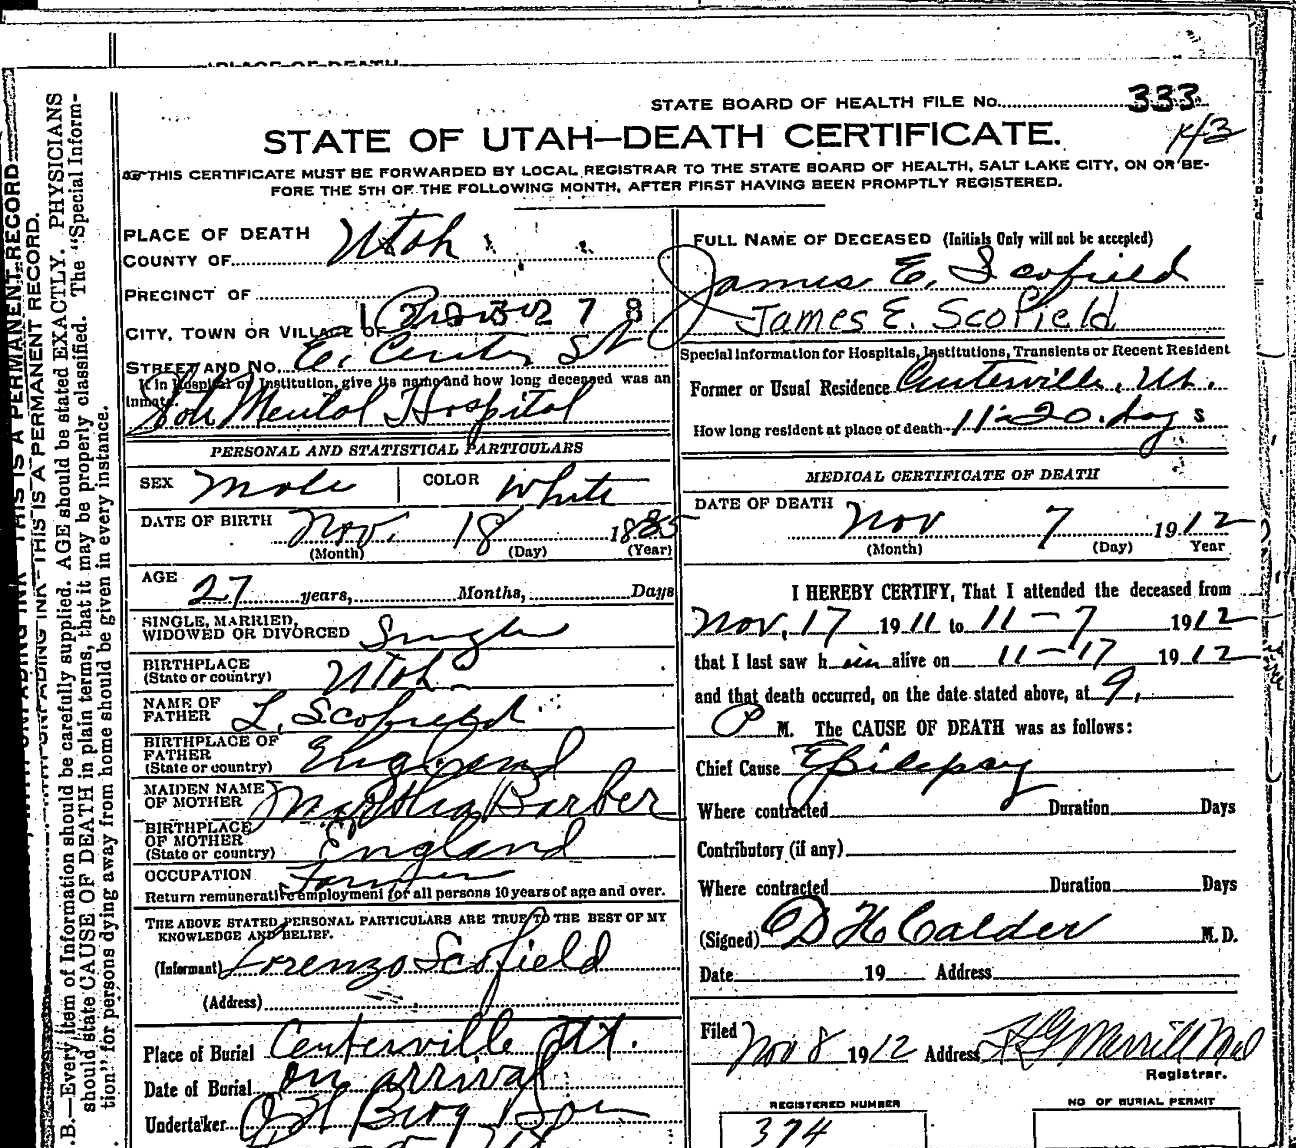 PLACE OF DEATH
STATE BOARD OF HEALTH FILE No. 333
STATE OF UTAH—DEATH CERTIFICATE. 143
THIS CERTIFICATE MUST BE FORWARDED BY LOCAL REGISTRAR TO THE STATE BOARD OF HEALTH, SALT LAKE CITY, ON OR BE-
FORE THE 5TH OF THE FOLLOWING MONTH, AFTER FIRST HAVING BEEN PROMPTLY REGISTERED.
PLACE OF DEATH
COUNTY OF Utah
PRECINCT OF
CITY, TOWN OR VILLAGE OF Provo
STREET AND No. E. Center St
If in Hospital or Institution, give its name and how long deceased was an
inmate. State Mental Hospital
PERSONAL AND STATISTICAL PARTICULARS
SEX Male COLOR White
DATE OF BIRTH Nov. 18 1885
(Month) (Day) (Year)
AGE 27 years, Months, Days
SINGLE, MARRIED,
WIDOWED OR DIVORCED Single
BIRTHPLACE
(State or country) Utah
NAME OF
FATHER L. Scofield
BIRTHPLACE OF
FATHER
(State or country) England
MAIDEN NAME
OF MOTHER Martha Barber
BIRTHPLACE
OF MOTHER
(State or country) England
OCCUPATION Farmer
Return remunerative employment for all persons 10 years of age and over.
THE ABOVE STATED PERSONAL PARTICULARS ARE TRUE TO THE BEST OF MY
KNOWLEDGE AND BELIEF.
(Informant) Lorenzo Scofield
(Address)
Place of Burial Centerville Ut.
Date of Burial on arrival
Undertaker Berg
FULL NAME OF DECEASED (Initials Only will not be accepted)
James E. Scofield
James E. Scofield
Special Information for Hospitals, Institutions, Transients or Recent Resident
Former or Usual Residence Centerville, Ut.
How long resident at place of death 11-20 days
MEDICAL CERTIFICATE OF DEATH
DATE OF DEATH Nov 7 1912
(Month) (Day) Year
I HEREBY CERTIFY, That I attended the deceased from
Nov. 17 1911 to 11-7 1912
that I last saw him alive on 11-17 1912
and that death occurred, on the date stated above, at 9,
P M. The CAUSE OF DEATH was as follows:
Chief Cause Epilepsy
Where contracted Duration Days
Contributory (if any)
Where contracted Duration Days
(Signed) D H Calder M.D.
Date 19 Address
Filed Nov 8 1912 Address Merrill
Registrar.
REGISTERED NUMBER
374
NO OF BURIAL PERMIT
THIS IS A PERMANENT RECORD
UNFADING INK—THIS IS A PERMANENT RECORD.
.B.—Every item of Information should be carefully supplied. AGE should be stated EXACTLY. PHYSICIANS
should state CAUSE OF DEATH in plain terms, that it may be properly classified. The "Special Inform-
tion" for persons dying away from home should be given in every instance.